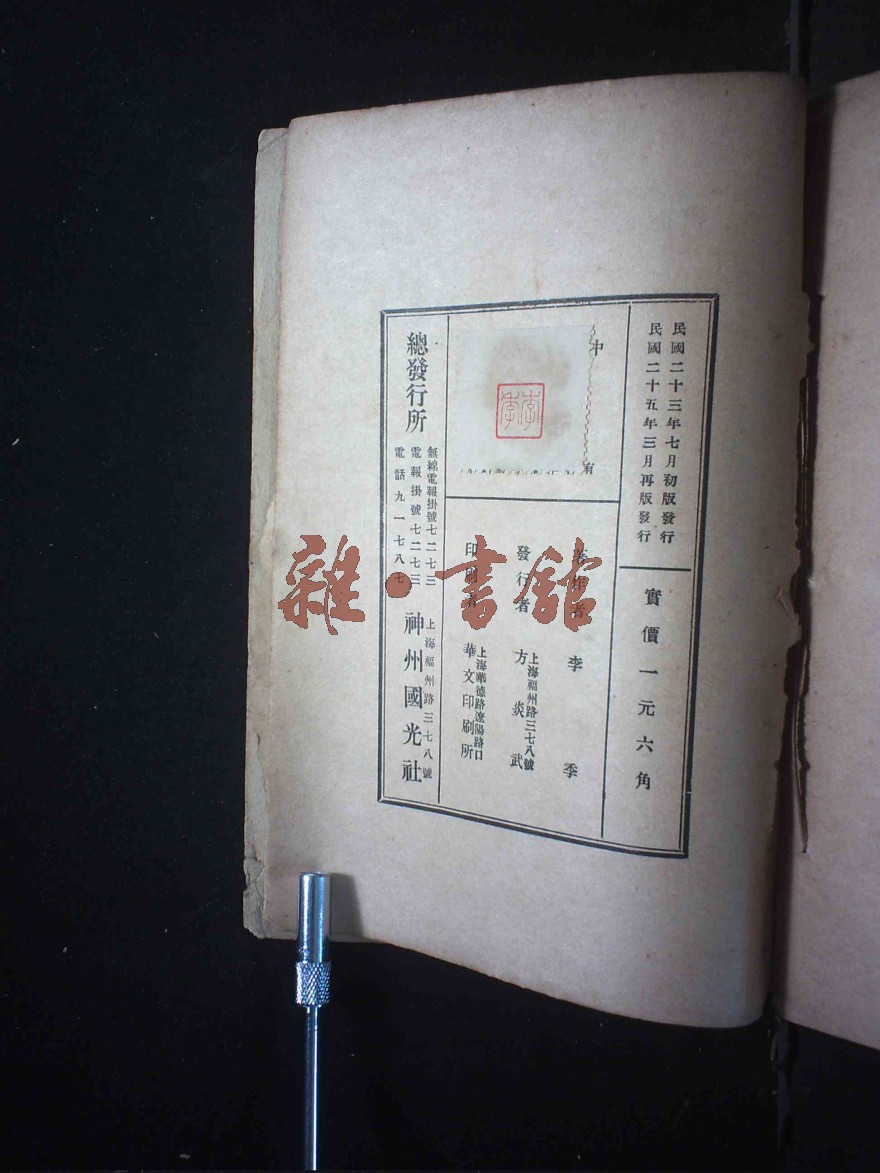 民國二十三年七月初版發行
民國二十五年三月再版發行
實價一元六角
中
有
著作者 李季
發行者 上海福州路三七八號
方炎武
印刷者 上海華德路遼陽路口
華文印刷所
總發行所
無線電報掛號七二七三
電報掛號七二七三
電話九一七八七
上海福州路三七八號
神州國光社
雜·書館